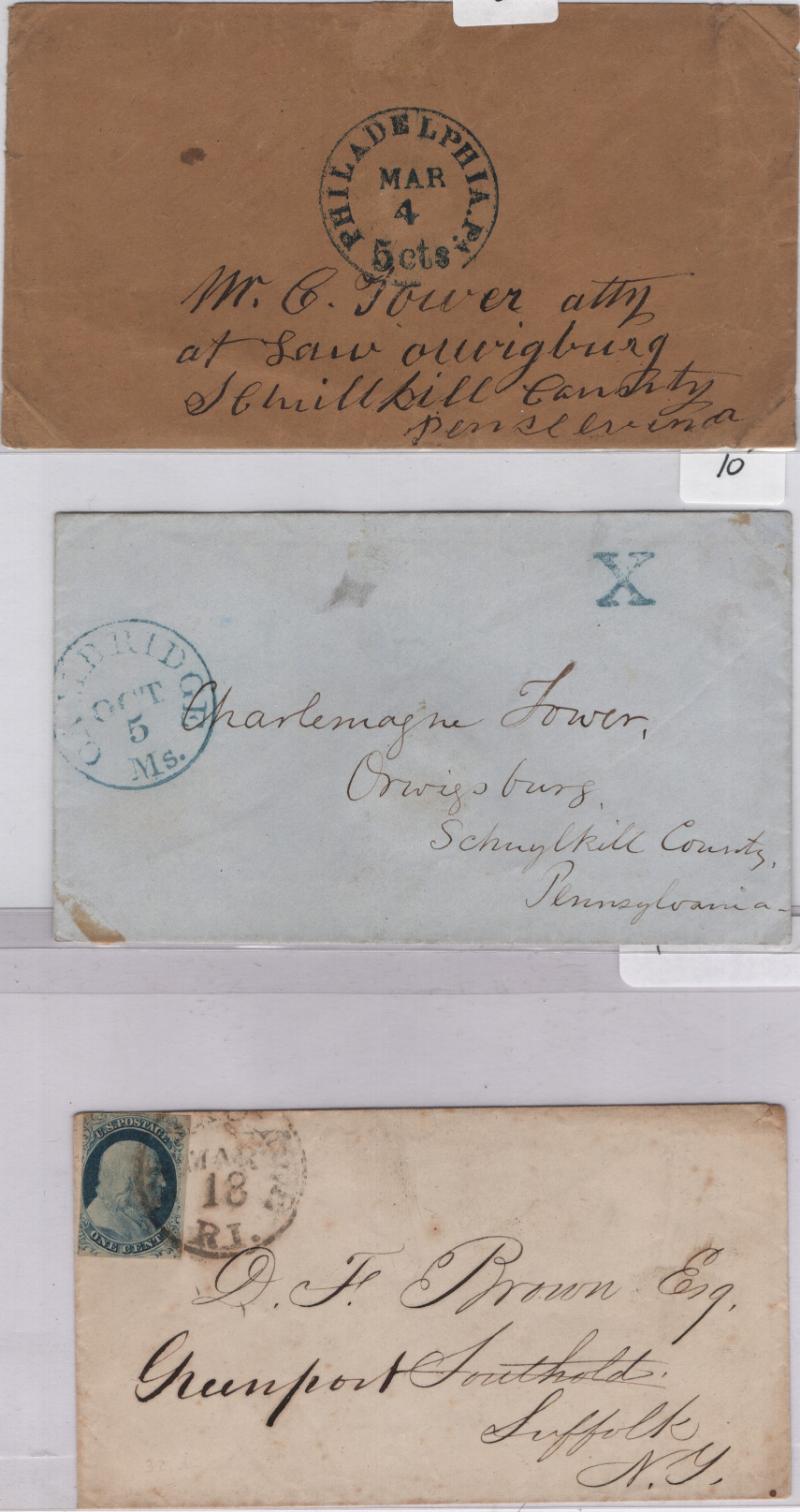 PHILADELPHIA. Pa.
MAR
4
5cts
Mr. C. Tower atty
at Law owigburg
Schuillkill County
Penselvina
10
X
CAMBRIDGE
OCT
5
Ms.
Charlemagne Tower,
Orwigsburg,
Schuylkill County,
Pennsylvania
U.S. POSTAGE
ONE CENT
MAR
18
R.I.
D. F. Brown Esq.
Greenport Southold.
Suffolk
N.Y.